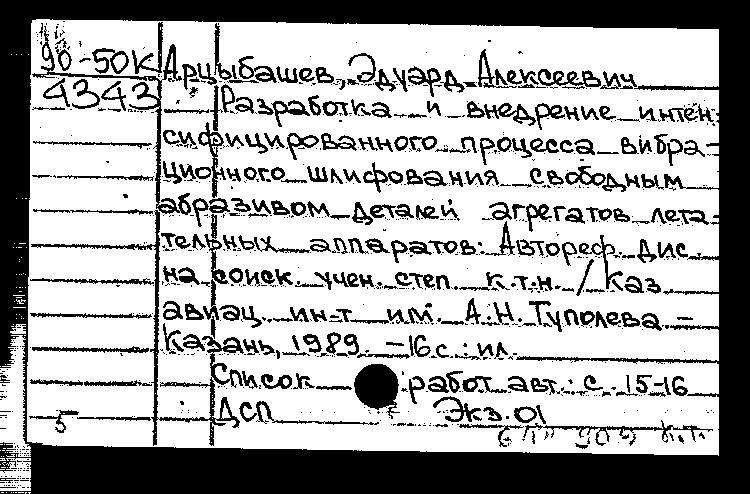 90-50К Арцыбашев, Эдуард Алексеевич
4343 Разработка и внедрение интен-
сифицированного процесса вибра-
ционного шлифования свободным
абразивом деталей агрегатов лета-
тельных аппаратов: Автореф. дис.
на соиск. учен. степ к.т.н. / Каз.
авиац. ин-т им. А.Н. Туполева. –
Казань, 1989. – 16 с.: ил.
Список работ авт.: с. 15-16
ДСП Экз.01
5